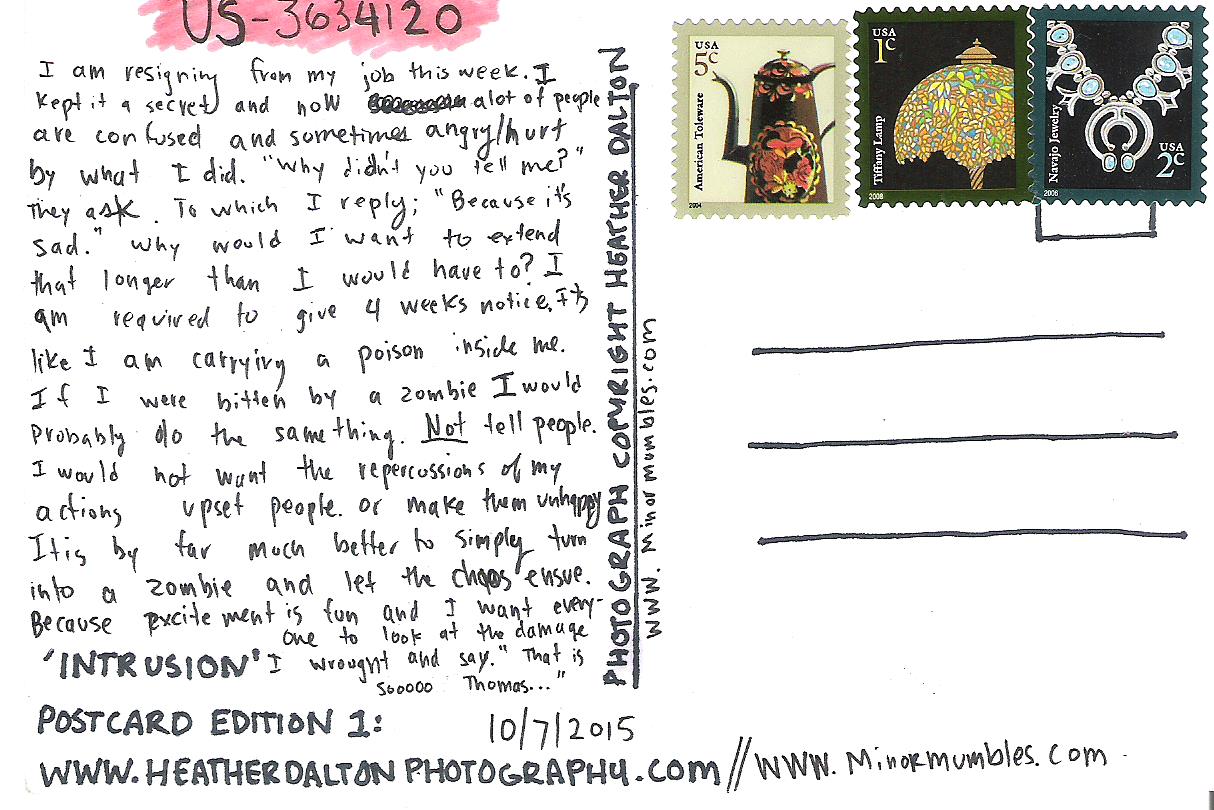 US-3634120
I am resigning from my job this week. I
kept it a secret and now alot of people
are confused and sometimes angry/hurt
by what I did. "Why didn't you tell me?"
They ask. To which I reply; "Because it's
sad." Why would I want to extend
that longer than I would have to? I
am required to give 4 weeks notice, It's
like I am carrying a poison inside me.
If I were bitten by a zombie I would
probably do the same thing. Not tell people.
I would not want the repercussions of my
actions upset people. or make them unhappy
It is by far much better to simply turn
into a zombie and let the chaos ensue.
Because excitement is fun and I want every-
one to look at the damage
I wrought and say." That is
sooooo Thomas..."
'INTRUSION'
POSTCARD EDITION 1:
10/7/2015
WWW.HEATHERDALTONPHOTOGRAPHY.COM//WWW.Minormumbles.com
PHOTOGRAPH COPYRIGHT HEATHER DALTON
WWW.Minormumbles.com
USA
5c
American Toleware
2004
USA
1c
Tiffany Lamp
2008
Navajo Jewelry
USA
2c
2006